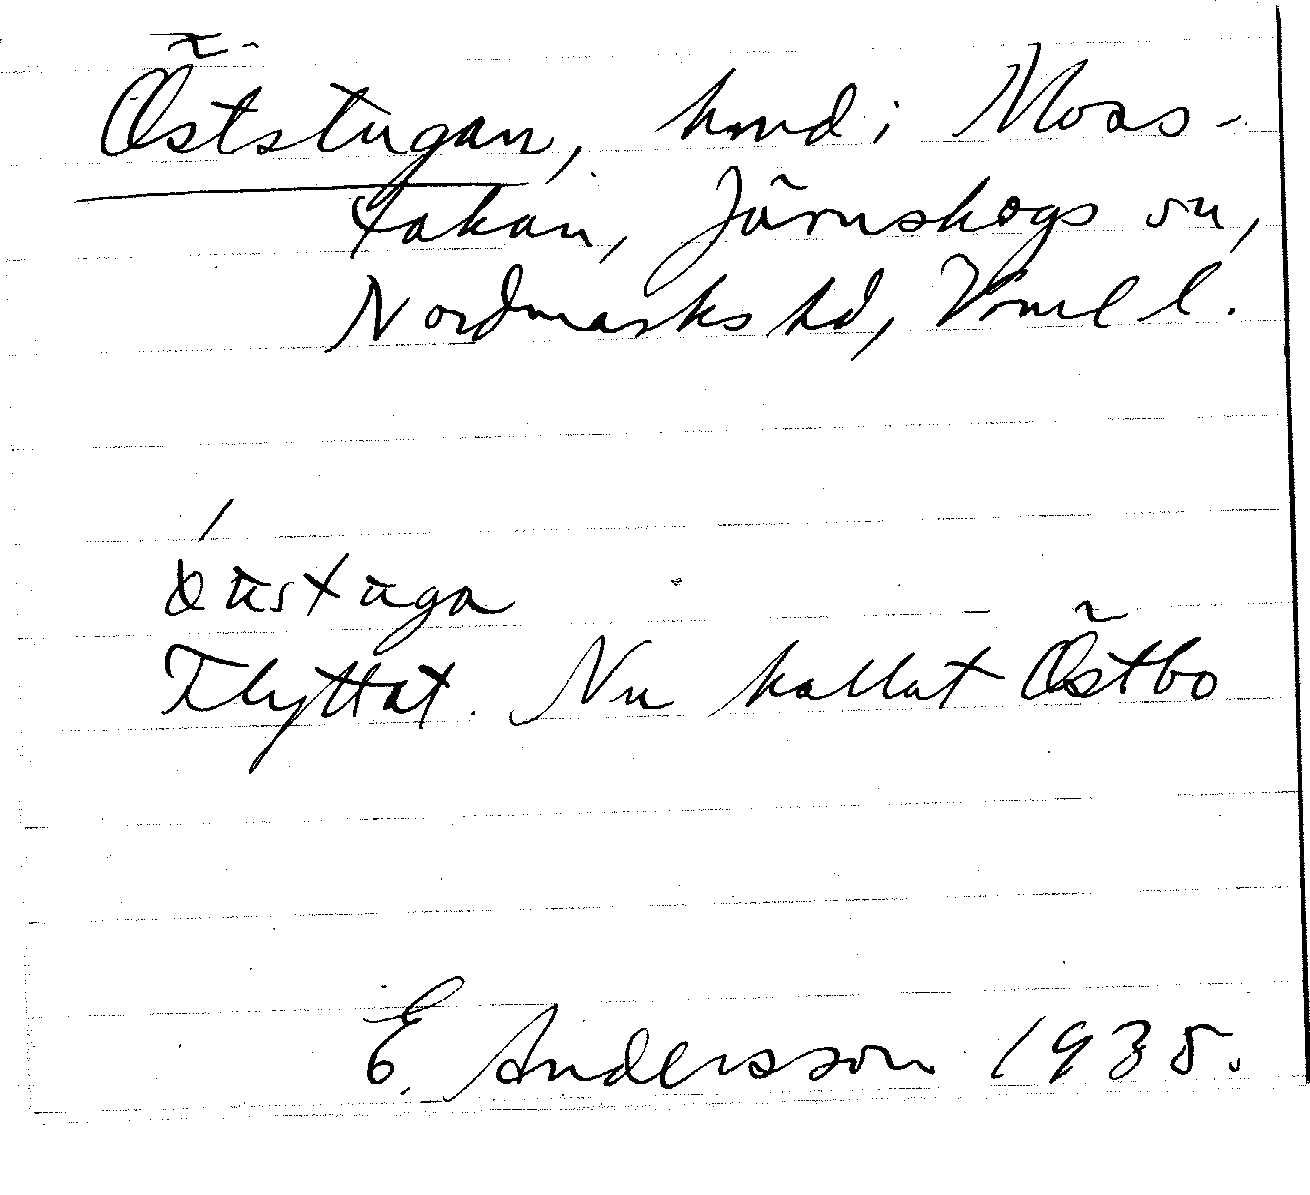 Öststugan, hmd i Moss-
takan, Järnskogs sn,
Nordmarks hd, Vrml l.
Flyttat. Nu kallat Östbo
E. Andersson 1935.